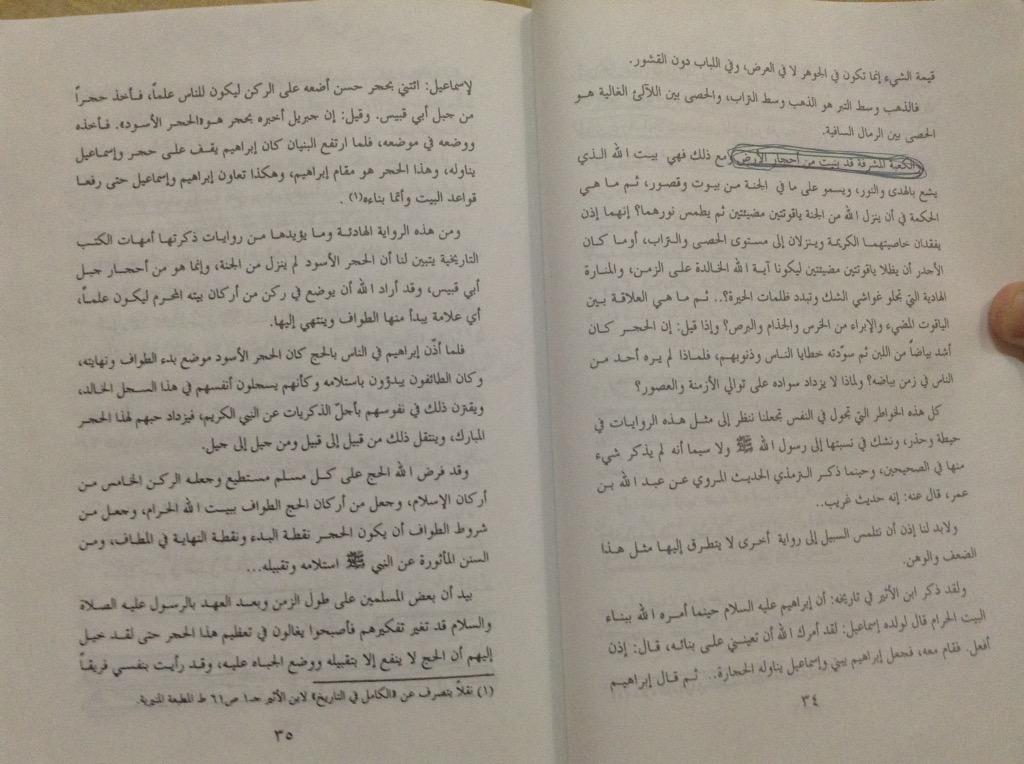 قيمة الشيء إنما تكون في الجوهر لا في العرض، وفي اللباب دون القشور.
فالذهب وسط التبر هو الذهب وسط التراب، والحصى بين اللآلئ الغالية هو
الحصى بين الرمال السافية.
الكعبة المشرفة قد بنيت من أحجار الأرض ومع ذلك فهي بيت الله الذي
يشع بالهدى والنور، ويسمو على ما في الجنة من بيوت وقصور، ثم ما هي
الحكمة في أن ينزل الله من الجنة ياقوتتين مضيئتين ثم يطمس نورهما؟ إنهما إذن
يفقدان خاصيتهما الكريمة وينزلان إلى مستوى الحصى والتراب، أوما كان
الأجدر أن يظلا ياقوتتين مضيئتين ليكونا آية الله الخالدة على الزمن، والمنارة
الهادية التي تجلو غواشي الشك وتبدد ظلمات الحيرة؟.. ثم ما هي العلاقة بين
الياقوت المضيء والإبراء من الخرس والجذام والبرص؟ وإذا قيل: إن الحجر كان
أشد بياضاً من اللبن ثم سوّدته خطايا الناس وذنوبهم، فلماذا لم يره أحد من
الناس في زمن بياضه؟ ولماذا لا يزداد سواده على توالي الأزمنة والعصور؟
كل هذه الخواطر التي تجول في النفس تجعلنا ننظر إلى مثل هذه الروايات في
حيطة وحذر، ونشك في نسبتها إلى رسول الله ﷺ ولا سيما أنه لم يذكر شيء
منها في الصحيحين، وحينما ذكر الترمذي الحديث المروي عن عبد الله بن
عمر، قال عنه: إنه حديث غريب..
ولابد لنا إذن أن نتلمس السبيل إلى رواية أخرى لا يتطرق إليها مثل هذا
الضعف والوهن.
ولقد ذكر ابن الأثير في تاريخه: أن إبراهيم عليه السلام حينما أمره الله ببناء
البيت الحرام قال لولده إسماعيل: لقد أمرك الله أن تعينني على بنائه، قال: إذن
أفعل. فقام معه، فجعل إبراهيم يبني وإسماعيل يناوله الحجارة.. ثم قال إبراهيم
٣٤
لإسماعيل: ائتني بحجر حسن أضعه على الركن ليكون للناس علماً، فأخذ حجراً
من جبل أبي قبيس. وقيل: إن جبريل أخبره بحجر هو «الحجر الأسود». فأخذه
ووضعه في موضعه، فلما ارتفع البنيان كان إبراهيم يقف على حجر وإسماعيل
يناوله، وهذا الحجر هو مقام إبراهيم، وهكذا تعاون إبراهيم وإسماعيل حتى رفعا
قواعد البيت وأتما بناءه(١) .
ومن هذه الرواية الهادئة وما يؤيدها من روايات ذكرتها أمهات الكتب
التاريخية يتبين لنا أن الحجر الأسود لم ينزل من الجنة، وإنما هو من أحجار جبل
أبي قبيس، وقد أراد الله أن يوضع في ركن من أركان بيته المحرم ليكون علماً،
أي علامة يبدأ منها الطواف وينتهي إليها.
فلما أذّن إبراهيم في الناس بالحج كان الحجر الأسود موضع بدء الطواف ونهايته،
وكان الطائفون يبدؤون باستلامه وكأنهم يسجلون أنفسهم في هذا السجل الخالد،
ويقترن ذلك في نفوسهم بأجلّ الذكريات عن النبي الكريم، فيزداد حبهم لهذا الحجر
المبارك، وينتقل ذلك من قبيل إلى قبيل ومن جيل إلى جيل.
وقد فرض الله الحج على كل مسلم مستطيع وجعله الركن الخامس من
أركان الإسلام، وجعل من أركان الحج الطواف ببيت الله الحرام، وجعل من
شروط الطواف أن يكون الحجر نقطة البدء ونقطة النهاية في المطاف، ومن
السنن المأثورة عن النبي ﷺ استلامه وتقبيله...
بيد أن بعض المسلمين على طول الزمن وبعد العهد بالرسول عليه الصلاة
والسلام قد تغير تفكيرهم فأصبحوا يغالون في تعظيم هذا الحجر حتى لقد خيل
إليهم أن الحج لا ينفع إلا بتقبيله ووضع الجباه عليه، وقد رأيت بنفسي فريقاً
(١) نقلاً بتصرف عن «الكامل في التاريخ» لابن الأثير حـ١ ص٦١ ط المطبعة المنيرية.
٣٥